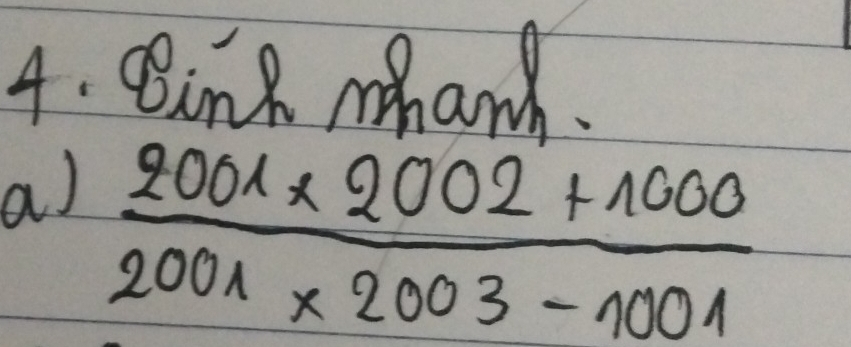 4. Tính nhanh.
a) 2001 x 2002 + 1000
2001 x 2003 - 1001